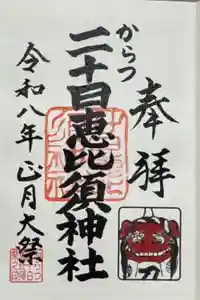 奉拝
からつ
二十日恵比須神社
令和八年 正月大祭